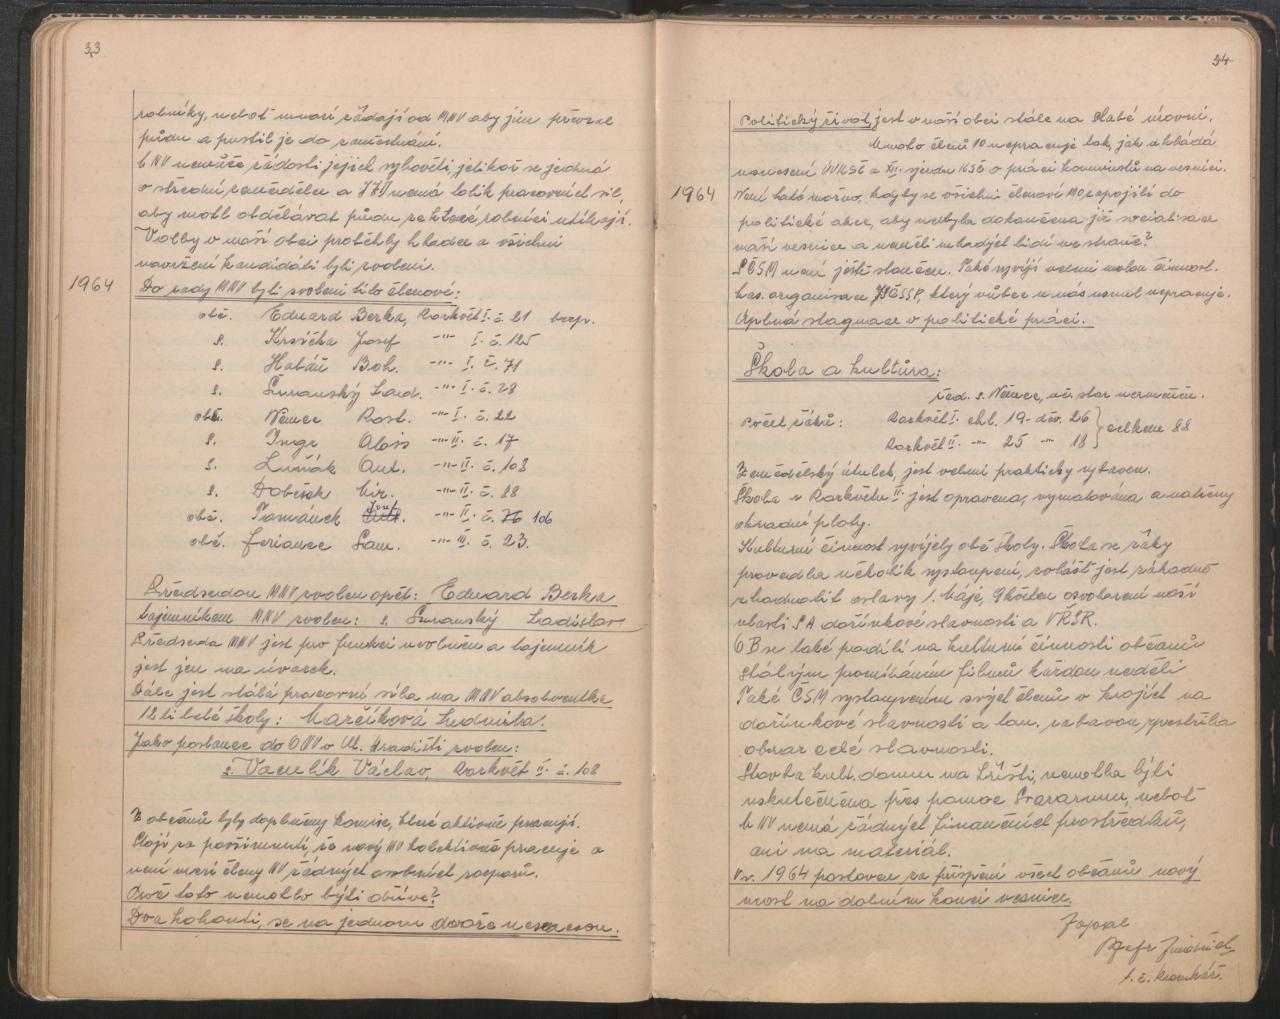 33
rolníky, neboť mnozí žádají od MNV aby jim převzal
půdu a pustil je do zaměstnání.
MNV nemůže žádosti jejich vyhověti, jelikož se jedná
o střední zemědělce a JZD nemá tolik pracovních sil,
aby mohl obdělávat půdu ze které rolníci utíkají.
Volby v naší obci proběhly hladce a všichni
navržení kandidáti byli zvoleni.
1964
Do rady MNV byli zvoleni tito členové:
obč. Eduard Berka, Rozkvět I. č. 21 bezp.
s. Krsička Josef -"- I. č. 125
s. Habáň Boh. -"- I. č. 71
s. Šuranský Lad. -"- I. č. 28
obč. Němec Rost. -"- I. č. 22
s. Ingr Alois -"- II. č. 17
s. Luňák Ant. -"- II. č. 108
s. Dobešek Mir. -"- II. č. 88
obč. Tománek Josef -"- II. č. 76 106
obč. Ferianec Sam. -"- III. č. 23.
Předsedou MNV zvolen opět: Eduard Berka
tajemníkem MNV zvolen: s. Šuranský Ladislav
Předseda MNV jest pro funkci uvolněn a tajemník
jest jen na úvazek.
Dále jest stálá pracovní síla na MNV absolventka
12ti leté školy: Marčíková Ludmila.
Jako poslanec do ONV v Uh. Hradišti zvolen:
s. Vaculík Václav, Rozkvět II. č. 108
Z občanů byly doplněny komise, které aktivně pracují.
Stojí za povšimnutí, že nový NV kolektivně pracuje a
není mezi členy NV žádných osobních rozporů.
Proč toto nemohlo býti dříve?
Dva kohouti, se na jednom dvoře nesnesou.
34
Politický život, jest v naší obci stále na slabé úrovni.
Mnoho členů VO nepracuje tak, jak ukládá
usnesení ÚVKSČ a XII. sjezdu KSČ o práci komunistů na vesnici.
1964
Není také možno, kdyby se všichni členové VO zapojili do
politické akce, aby nebyla dokončena již socialisace
naší vesnice a neměli mladých lidí ve straně?
SČSM není ještě sloučen. Také vyvíjí velmi malou činnost.
Las. organisace SČSSP, který vůbec u nás usnul nepracuje.
Úplná stagnace v politické práci.
Škola a kultůra:
řed. s. Němec, uč. sbor nezměněn.
Počet žáků: Rozkvět I. chl. 19 - děv. 26 } celkem 88
Rozkvět II. -"- 25 -"- 18
Zemědělský útulek, jest velmi prakticky vybaven.
Škola v Rozkvětu II. jest opravena, vymalována a natřeny
ohradní ploty.
Kulturní činnost vyvíjely obě školy. Škola se žáky
provedla několik vystoupení, zvlášť jest záhodno
zhodnotit oslavy 1. Máje, 9. května osvobození naší
vlasti SA dožínkové slavnosti a VŘSR.
OB se také podílí na kulturní činnosti občanů
stálým promítáním filmů každou neděli
Také ČSM vystoupením svých členů v krojích na
dožínkové slavnosti a tan. zábavou zpestřila
obraz celé slavnosti.
Stavba kult. domu na Lhůští, nemohla býti
uskutečněna přes pomoc Svazarmu, neboť
MNV nemá žádných finančních prostředků,
ani na materiál.
V r. 1964 postaven za přispění všech občanů nový
most na dolním konci vesnice.
Zapsal
Jindřich
t. č. kronikář.